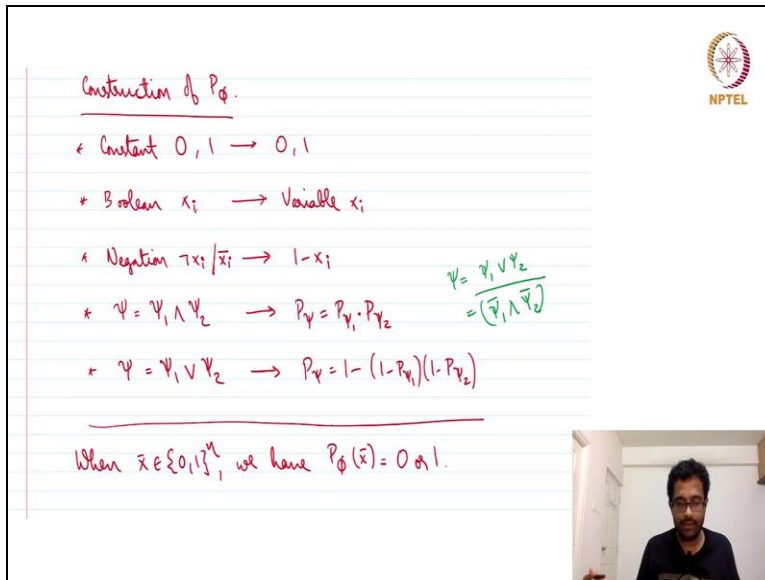 NPTEL
Construction of P_ϕ.
* Constant 0, 1 → 0, 1
* Boolean x_i → Variable x_i
* Negation ¬x_i / x̄_i → 1 - x_i
Ψ = Ψ_1 ∨ Ψ_2
= \overline{(Ψ̄_1 ∧ Ψ̄_2)}
* Ψ = Ψ_1 ∧ Ψ_2 → P_Ψ = P_Ψ_1 · P_Ψ_2
* Ψ = Ψ_1 ∨ Ψ_2 → P_Ψ = 1 - (1 - P_Ψ_1)(1 - P_Ψ_2)
When x̄ ∈ {0,1}^n, we have P_ϕ(x̄) = 0 or 1.